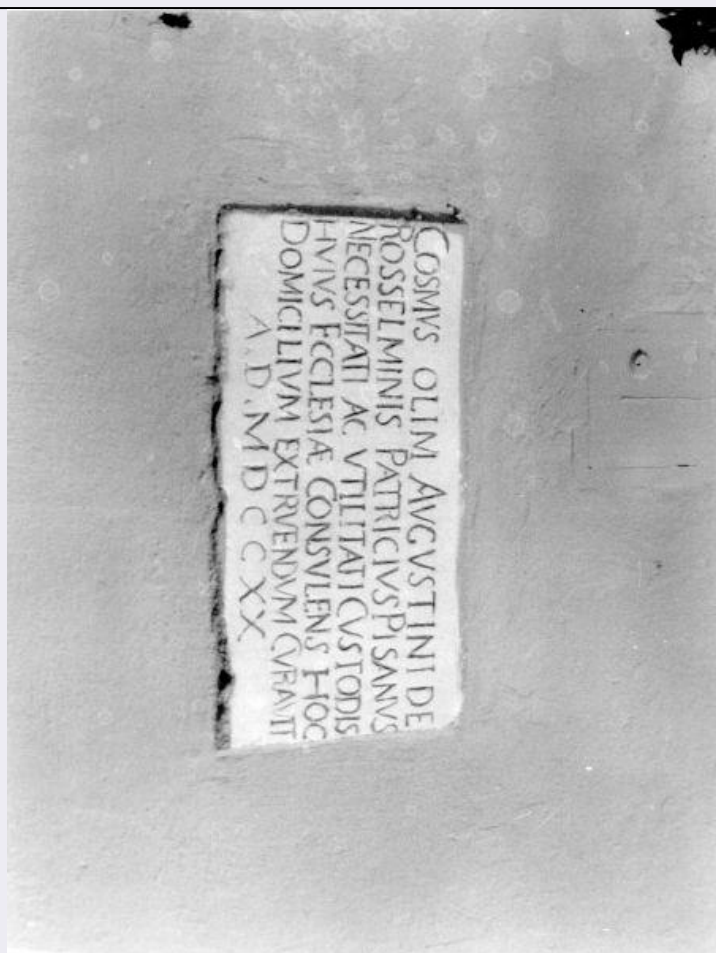 COSMVS OLIM AVGVSTINI DE
ROSSELMINIS PATRICIVS PISANVS
NECESSITATI AC VTILITATI CVSTODIS
HVIVS ECCLESIÆ CONSVLENS HOC
DOMICILIVM EXTRVENDVM CVRAVIT
A. D. MDCCXX